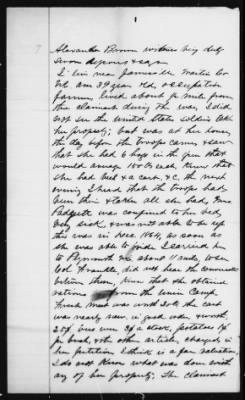 7
Alexander Brown witness being duly
sworn deposes & says
I live near Jamesville Martin Co
N.C. am 39 year old, occupation
farmer, lived about ½ mile from
the claimant during the war, I did
not see the United States soldiers take
her property; but was at her house
the day before the troops came & saw
that she had 6 hogs in the pen that
would average 100 each, knew that
she had bed & a cart, & c. the next
evening I heard that the troops had
been there & taken all she had, Mrs
Padgett was confined to her bed
very sick, & was not able to be up
this was in 1864, as soon as
she was able to ride I carried her
to Plymouth
Col Frankle, did not hear the
between them, knew that she obtained
rations from the Union Camp.
Fresh meat was worth 20¢ the cart
was nearly new, in good order, & worth
25$ one
pr bush, & the other articles charged in
her petition I think is a fair valuation,
I do not know what was done with
any of her property; the claimant